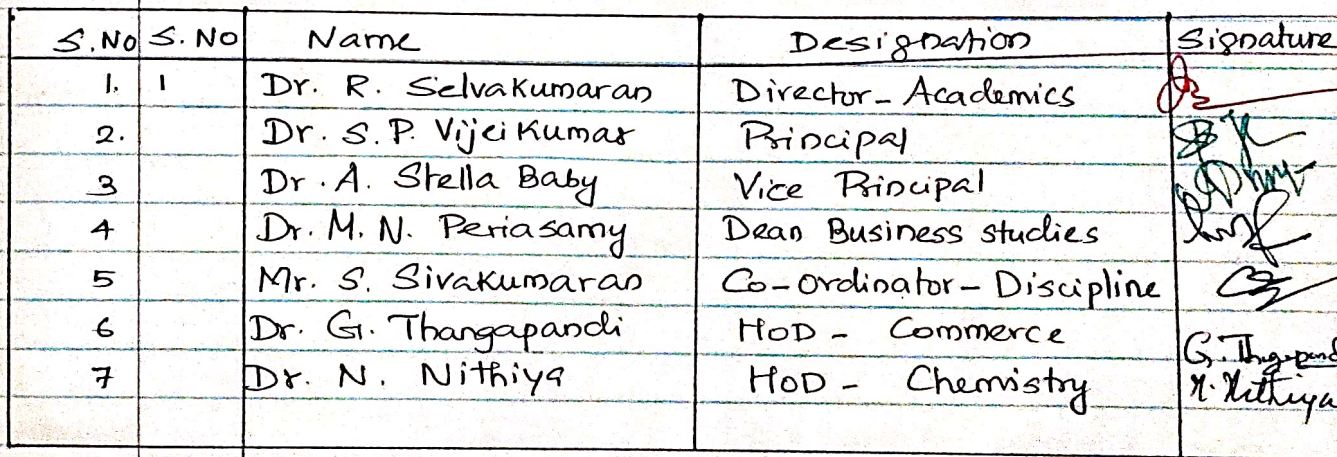 S.No S. No Name Designation Signature
1. 1 Dr. R. Selvakumaran Director - Academics
2. Dr. S. P. Vijeikumar Principal
3 Dr. A. Stella Baby Vice Principal
4 Dr. M. N. Periasamy Dean Business studies
5 Mr. S. Sivakumaran Co-ordinator - Discipline
6 Dr. G. Thangapandi HoD - Commerce G. Thgapand
7 Dr. N. Nithiya HoD - Chemistry N. Nithiya